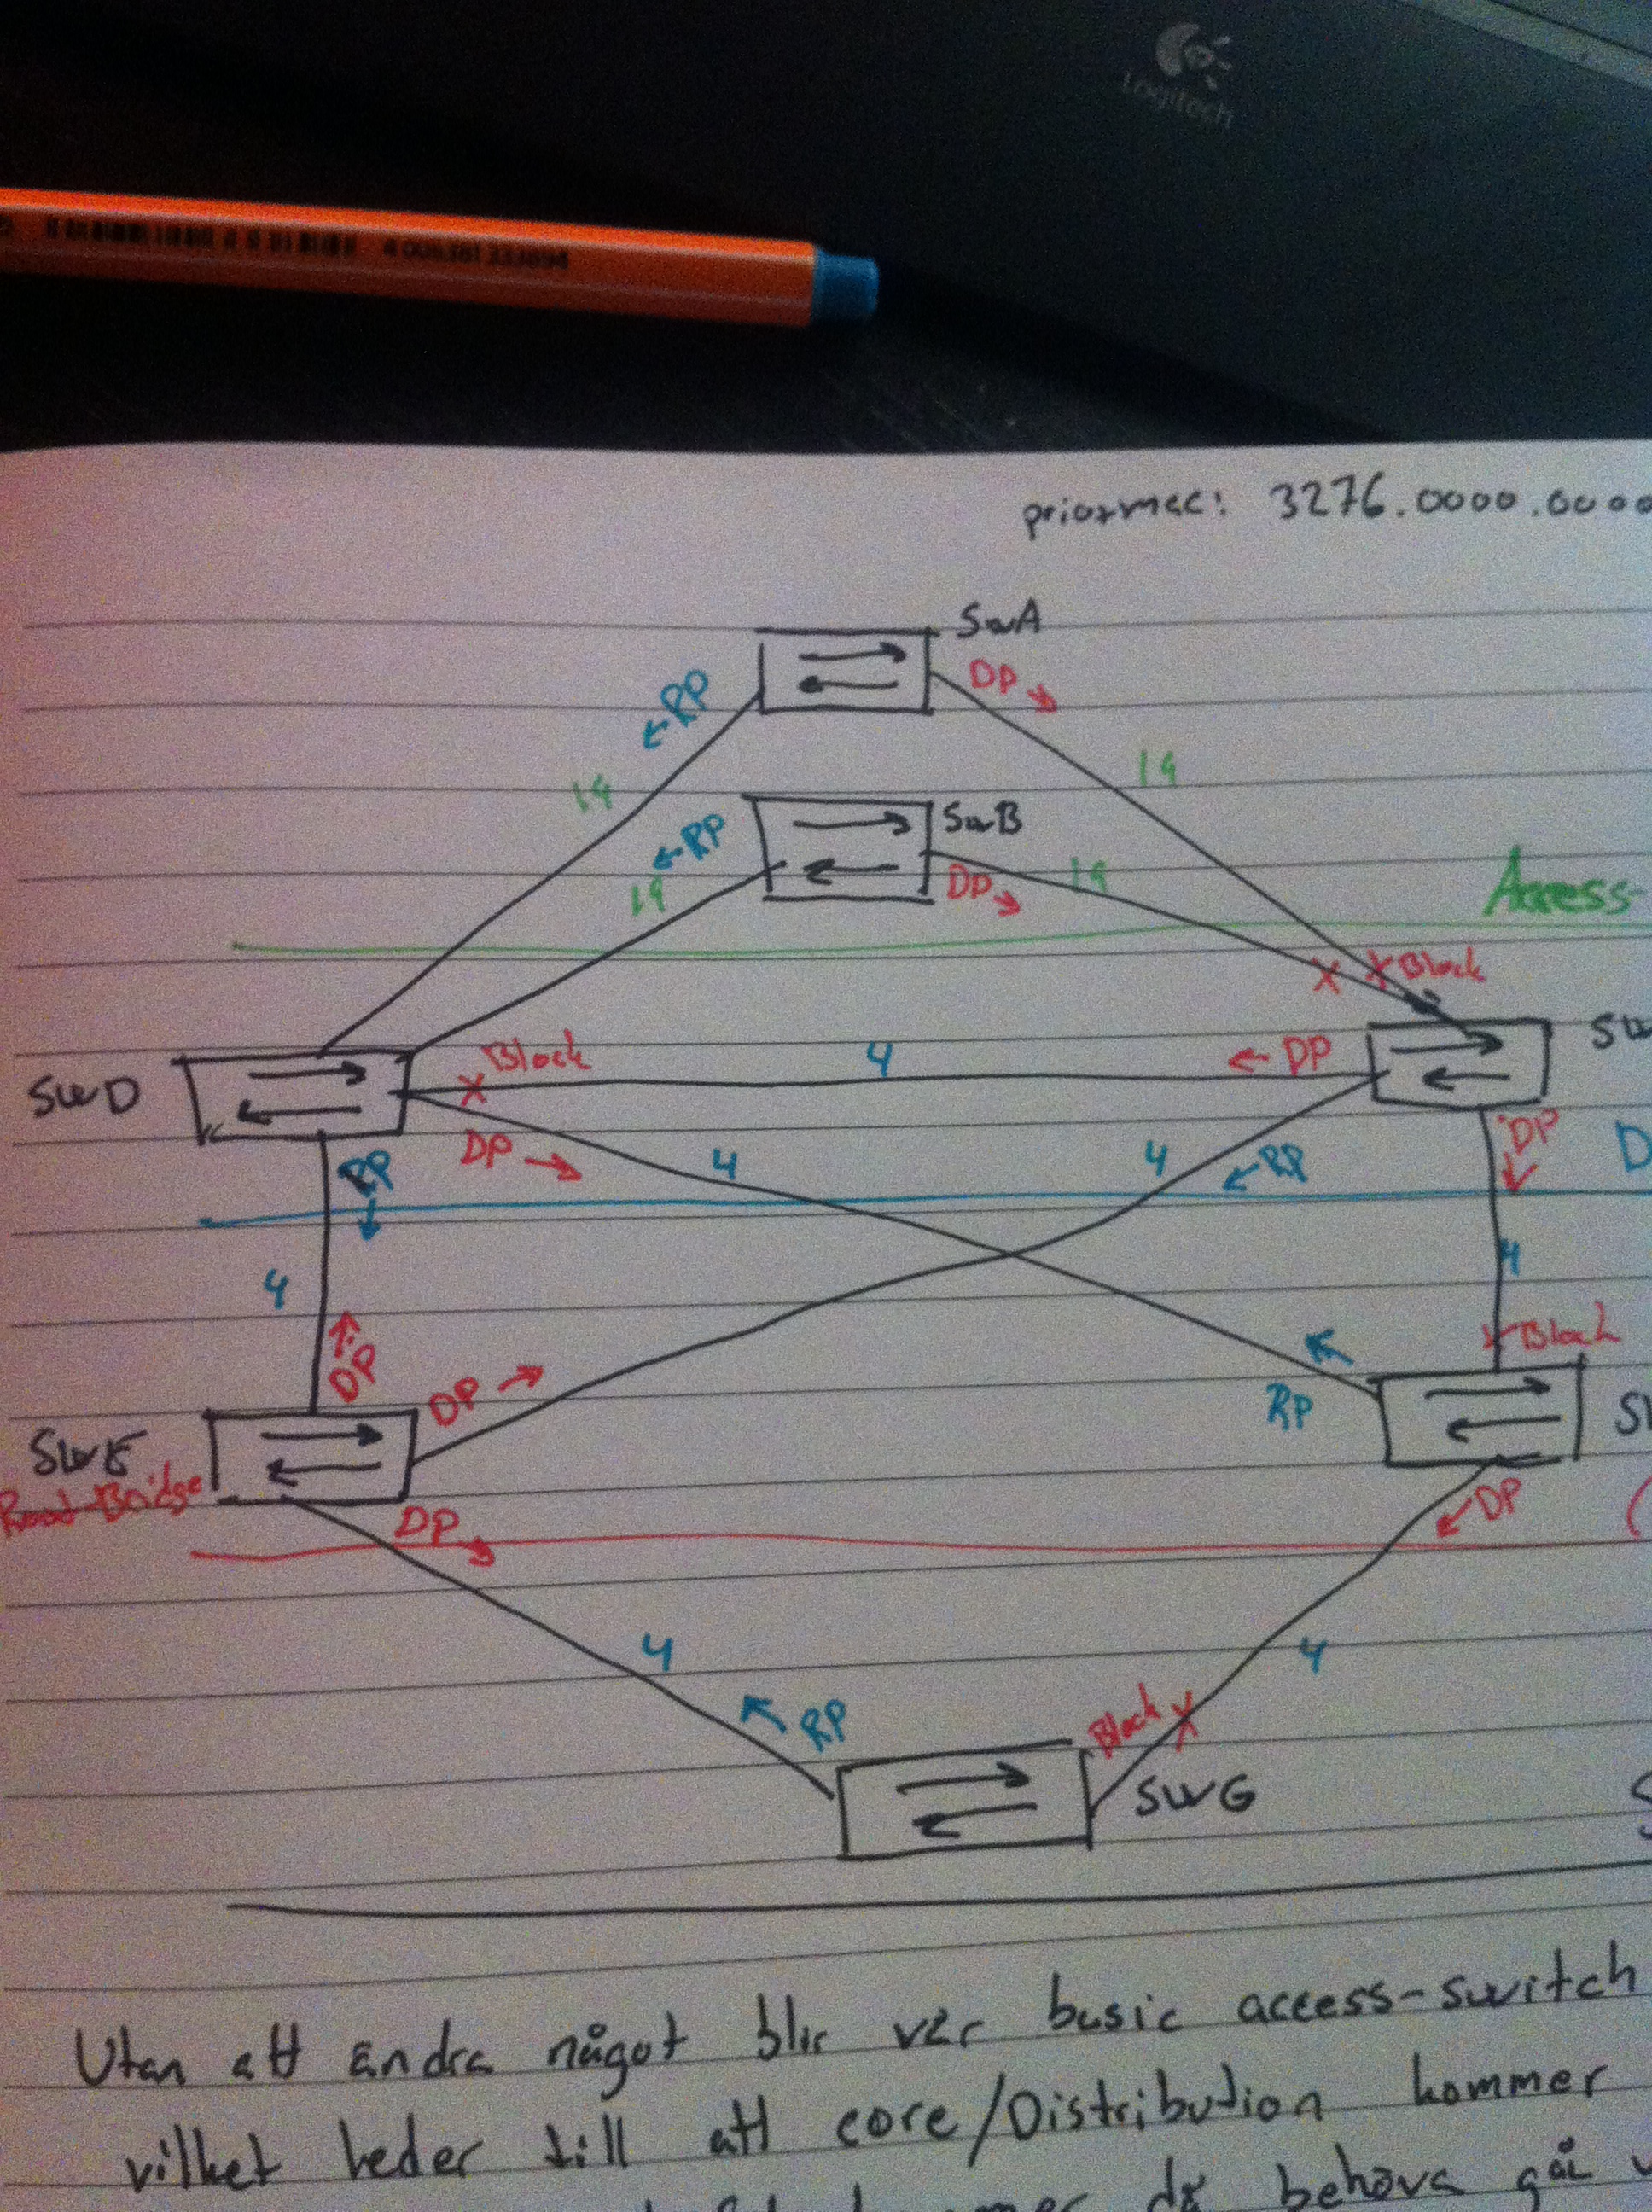 Logitech
prio+mac: 3276.0000.000
SwA
DP
RP
19
19
SwB
RP
DP
19
19
Access-
Block
Block
4
DP
SW
SwD
DP
4
4
RP
DP
D
RP
4
4
DP
DP
Block
RP
SwE
Root-Bridge
DP
DP
4
4
RP
Block
SwG
Utan att ändra något blir vår basic access-switch
vilket leder till att core/Distribution kommer
då behöva gå